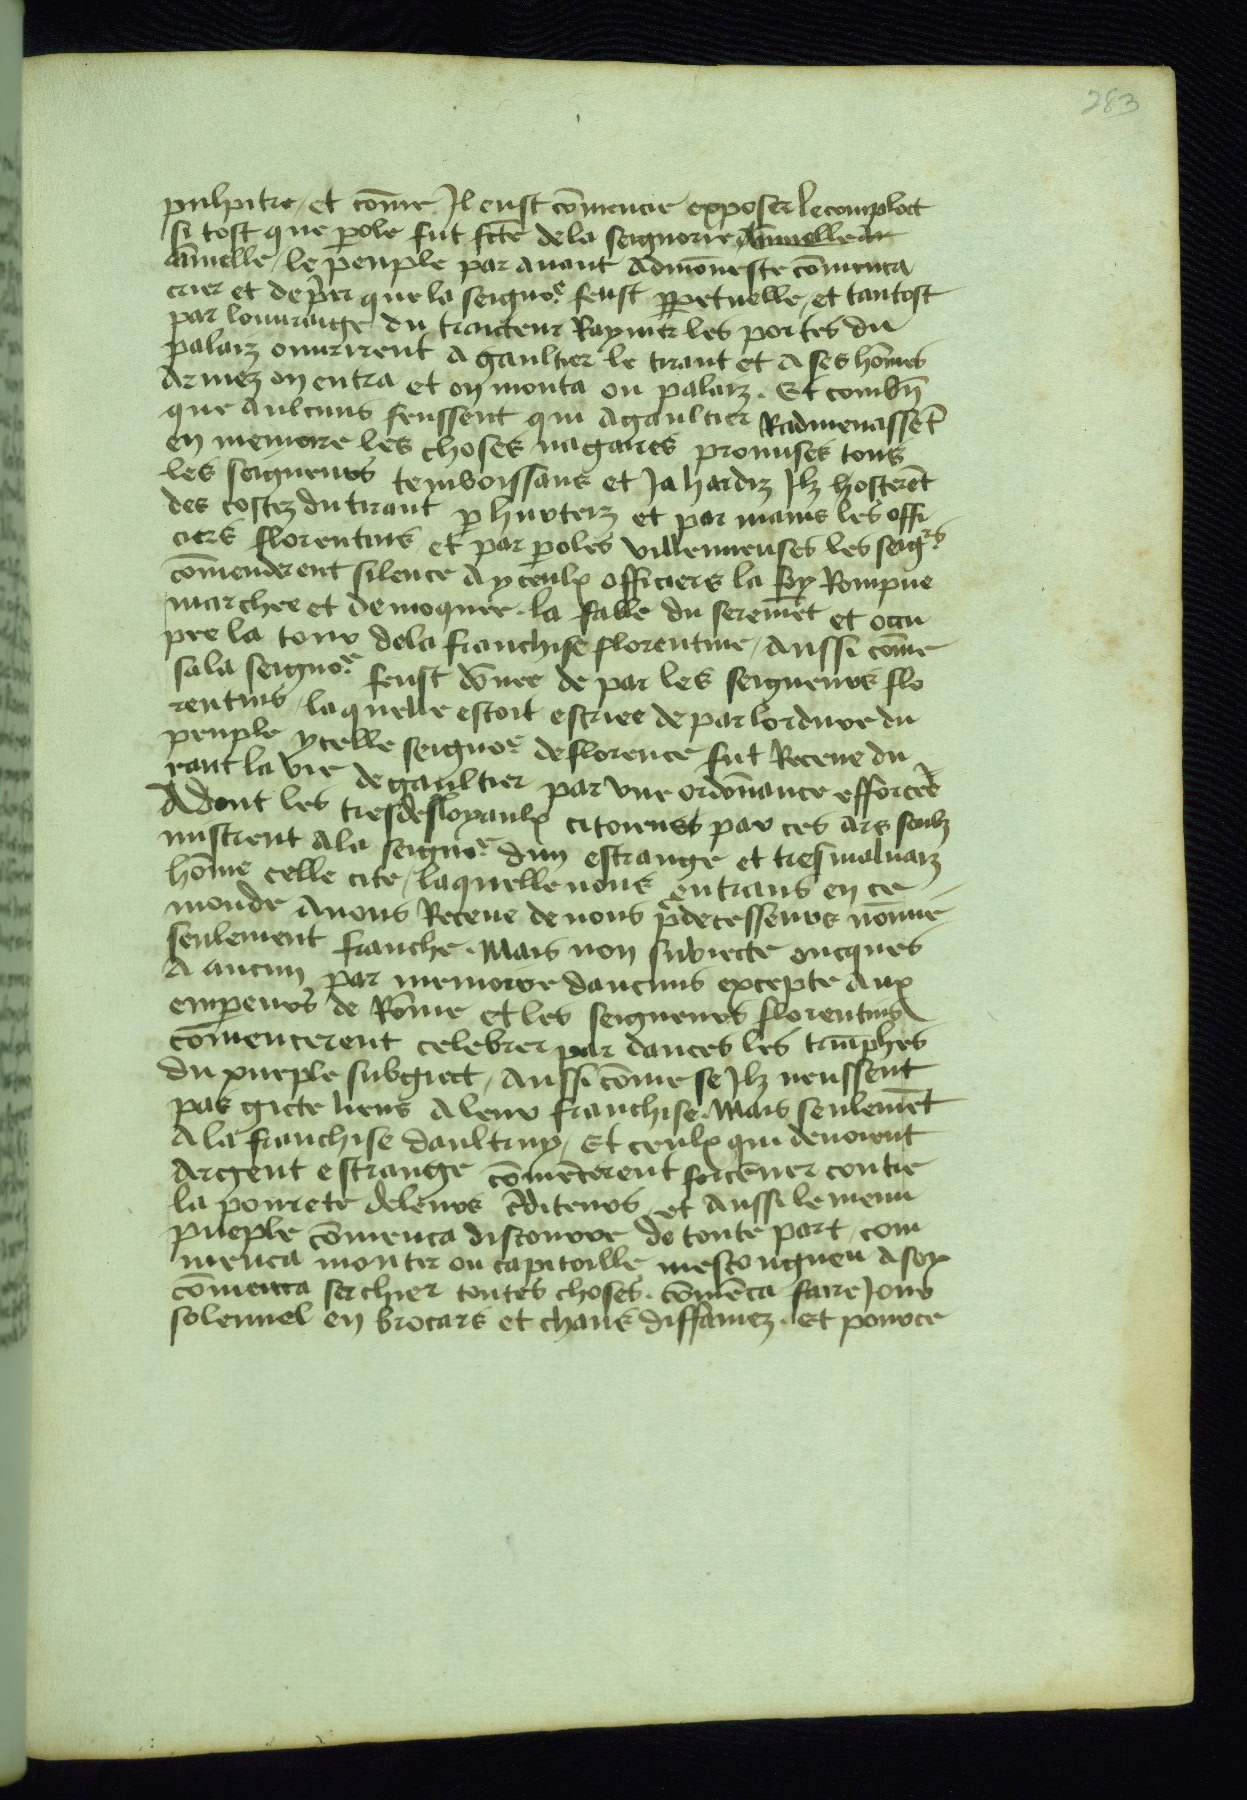 283
pulpitre / et cōme Jl eust cōmencie exposer le complott
si tost que p̄ole fut fcte de la seignorie annuelle
annuelle / le peuple par auant Admōneste cōmenca
crier et dep̄er que la seigno.e feust pꝑetuelle / et tantost
par louuraige du traicteur Raynier les portes du
palaiz ouurirent A gaultier le tirant et A ses hōmes
Armez on entra et on monta ou palaiz . Et combn̄
que Aulcuns feussent qui A gaultier Radmenasset̄
en memoire les choses nagaires promises tous
les seigneurs tenvoissans et Ja hardiz Jlz hosterēt
des costez du tirant p hurteiz et par mains les offi
ciers florentins et par p̄oles villenneuses les seigrs
cōmenderent silence A yceulx officiers la foy Rompue
marchee et demoquee . la salle du seremēt et occu
pee la tour dela franchise florentine / Aussi cōme
sa la seigno.e feust dōnee de par les seigneurs flo
rentins / la quelle estoit estriee de par lordure du
peuple ycelle seigno.e de florence fut Receue du
rant la vie de gaultier par vne ordōnance efforcee
Adont les tresdesloyaulx citoiens par ces Ars soubz
mistrent A la seigno.e dun estrange et tresmaluaiz
hōme celle cite / laquelle nous entrans en ce
monde Auons Receue de nous p̄decesseurs nōmie
seulement franche . Mais non subiecte oncques
A aucun par memoire daucuns excepte Aux
emp̄eurs de Rōme et les seigneurs florentins
cōmencerent celebrer par dances les triūphes
du pueple subgiect / Aussi cōme se Jlz neussent
pas giete liens A leur franchise . Mais seulemēt
A la franchise daultruy / Et ceulx qui deuoient
Argent estrange cōmēcerent forcener contre
la pourete deleurs c̄diteurs et Aussi le menu
pueple cōmenca discourre de toute part / com
menca monter ou capitoille mescongneu A soy
cōmenca serchier toutes choses . cōmēca faire Jour
solennel en brocars et chans diffamez . Et pource